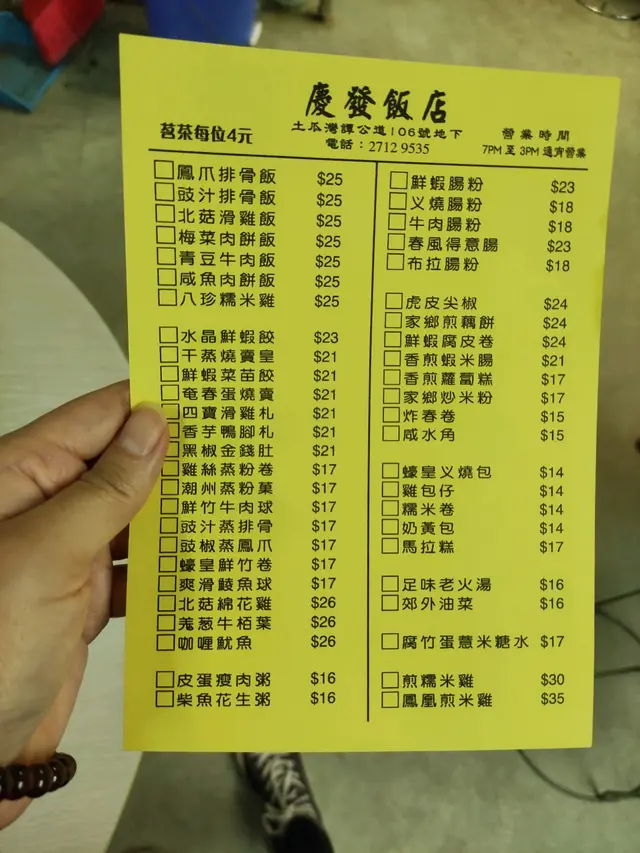 慶發飯店
茗茶每位4元
土瓜灣譚公道106號地下
電話：2712 9535
營業時間
7PM 至 3PM 通宵營業
鳳爪排骨飯 $25
豉汁排骨飯 $25
北菇滑雞飯 $25
梅菜肉餅飯 $25
青豆牛肉飯 $25
咸魚肉餅飯 $25
八珍糯米雞 $25
水晶鮮蝦餃 $23
干蒸燒賣皇 $21
鮮蝦菜苗餃 $21
奄春蛋燒賣 $21
四寶滑雞札 $21
香芋鴨腳札 $21
黑椒金錢肚 $21
雞絲蒸粉卷 $17
潮州蒸粉菓 $17
鮮竹牛肉球 $17
豉汁蒸排骨 $17
豉椒蒸鳳爪 $17
蠔皇鮮竹卷 $17
爽滑鯪魚球 $17
北菇綿花雞 $26
羗葱牛栢葉 $26
咖喱魷魚 $26
皮蛋瘦肉粥 $16
柴魚花生粥 $16
鮮蝦腸粉 $23
义燒腸粉 $18
牛肉腸粉 $18
春風得意腸 $23
布拉腸粉 $18
虎皮尖椒 $24
家鄉煎藕餅 $24
鮮蝦腐皮卷 $24
香煎蝦米腸 $21
香煎蘿蔔糕 $17
家鄉炒米粉 $17
炸春卷 $15
咸水角 $15
蠔皇义燒包 $14
雞包仔 $14
糯米卷 $14
奶黃包 $14
馬拉糕 $17
足味老火湯 $16
郊外油菜 $16
腐竹蛋薏米糖水 $17
煎糯米雞 $30
鳳凰煎米雞 $35